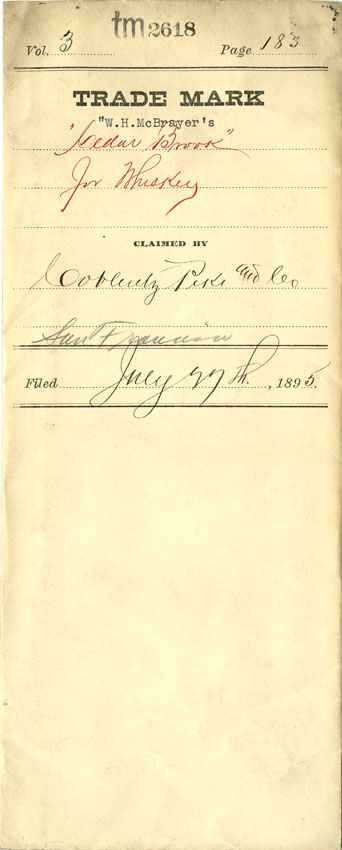 tm 2618
Vol. 3 Page 183
TRADE MARK
"W.H.McBrayer's
"Cedar Brook"
For Whiskey
CLAIMED BY
Coblentz Pike and Co
San Francisco
Filed July 27th. , 1895.